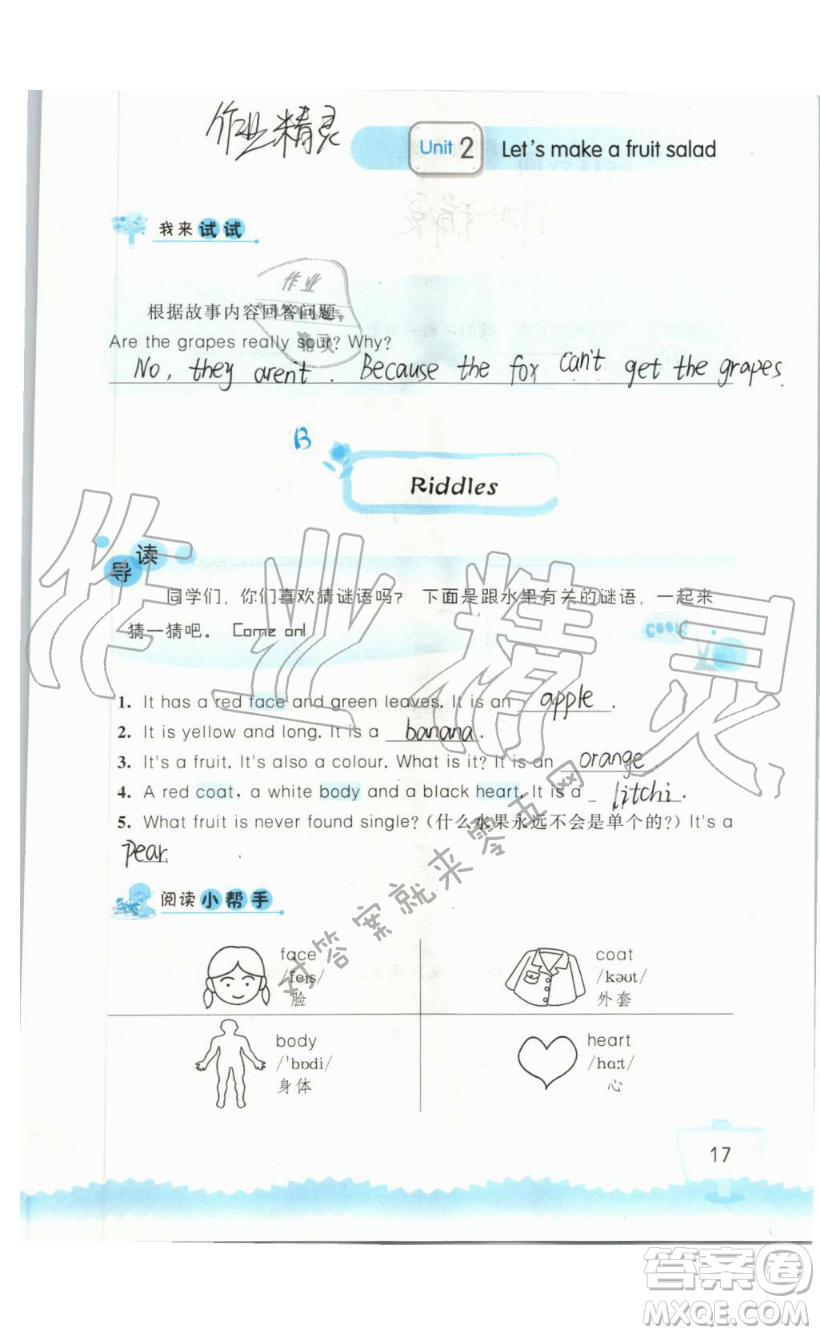 作业精灵
Unit 2 Let's make a fruit salad
我来试试
作业
精灵
根据故事内容回答问题。
Are the grapes really sour? Why?
No, they aren't. Because the fox can't get the grapes.
B
Riddles
导读
同学们，你们喜欢猜谜语吗？ 下面是跟水果有关的谜语，一起来
猜一猜吧。 Come on!
作业精灵
1. It has a red face and green leaves. It is an apple.
2. It is yellow and long. It is a banana.
3. It's a fruit. It's also a colour. What is it? It is an orange
4. A red coat, a white body and a black heart. It is a litchi.
5. What fruit is never found single?（什么水果永远不会是单个的？）It's a
Pear.
对答案就来零五网
阅读小帮手
face
/feɪs/
脸
coat
/kəʊt/
外套
body
/ˈbɒdi/
身体
heart
/hɑːt/
心
17
答案圈
MXQE.COM